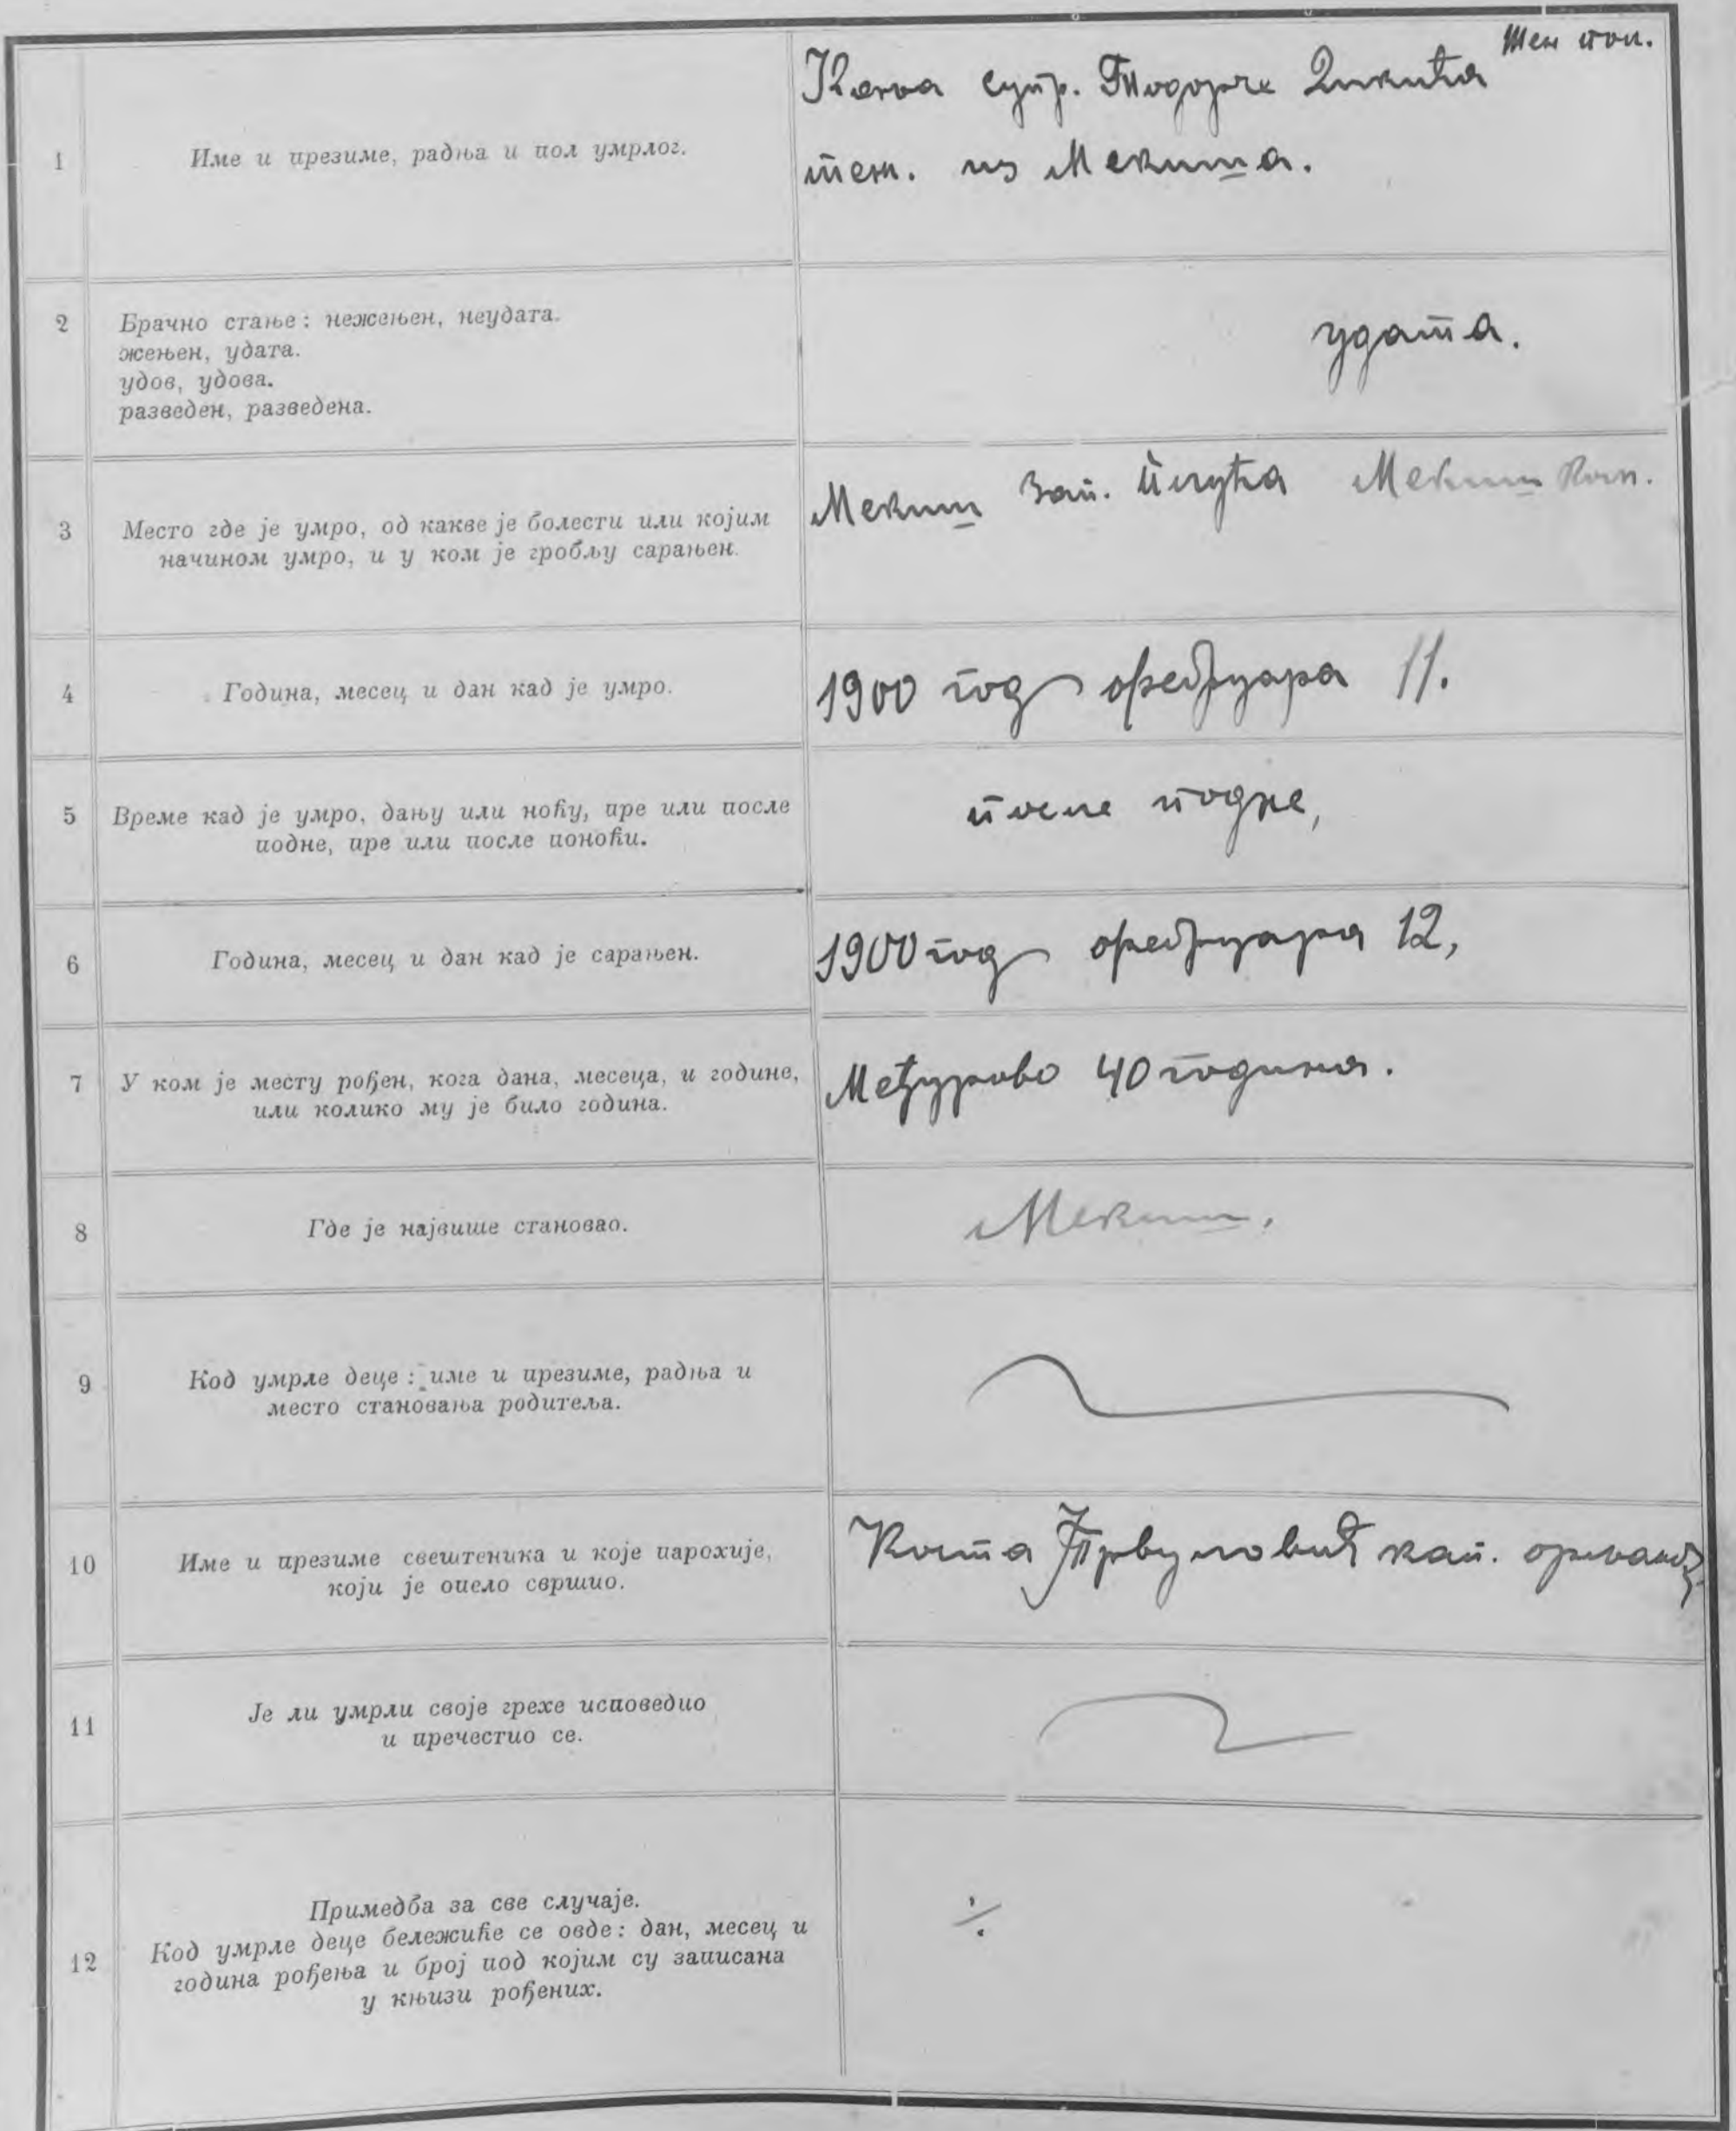 жен пол.
супр. Тодорче
1
Име и презиме, радња и пол умрлог.
теж. из Мекиша.
2
Брачно стање: нежењен, неудата.
жењен, удата.
удов, удова.
разведен, разведена.
удата.
3
Место где је умро, од какве је болести или којим
начином умро, и у ком је гробљу сарањен.
Мекиш Зап. плућа Мекиш
4
Година, месец и дан кад је умро.
1900 год фебруара 11.
5
Време кад је умро, дању или ноћу, пре или после
подне, пре или после поноћи.
после подне,
6
Година, месец и дан кад је сарањен.
1900 год фебруара 12,
7
У ком је месту рођен, кога дана, месеца, и године,
или колико му је било година.
Међурово 40 година.
8
Где је највише становао.
Мекиш.
9
Код умрле деце: име и презиме, радња и
место становања родитеља.
10
Име и презиме свештеника и које парохије,
који је опело свршио.
Коста Трвуловић кап.
11
Је ли умрли своје грехе исповедио
и пречестио се.
12
Примедба за све случаје.
Код умрле деце бележиће се овде: дан, месец и
година рођења и број под којим су записана
у књизи рођених.